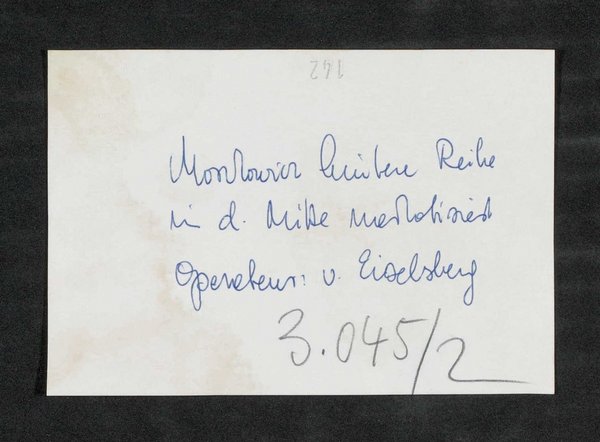 142
Moszkowicz hintere Reihe
in d. Mitte
Operateur: v. Eiselsberg
3.045/2